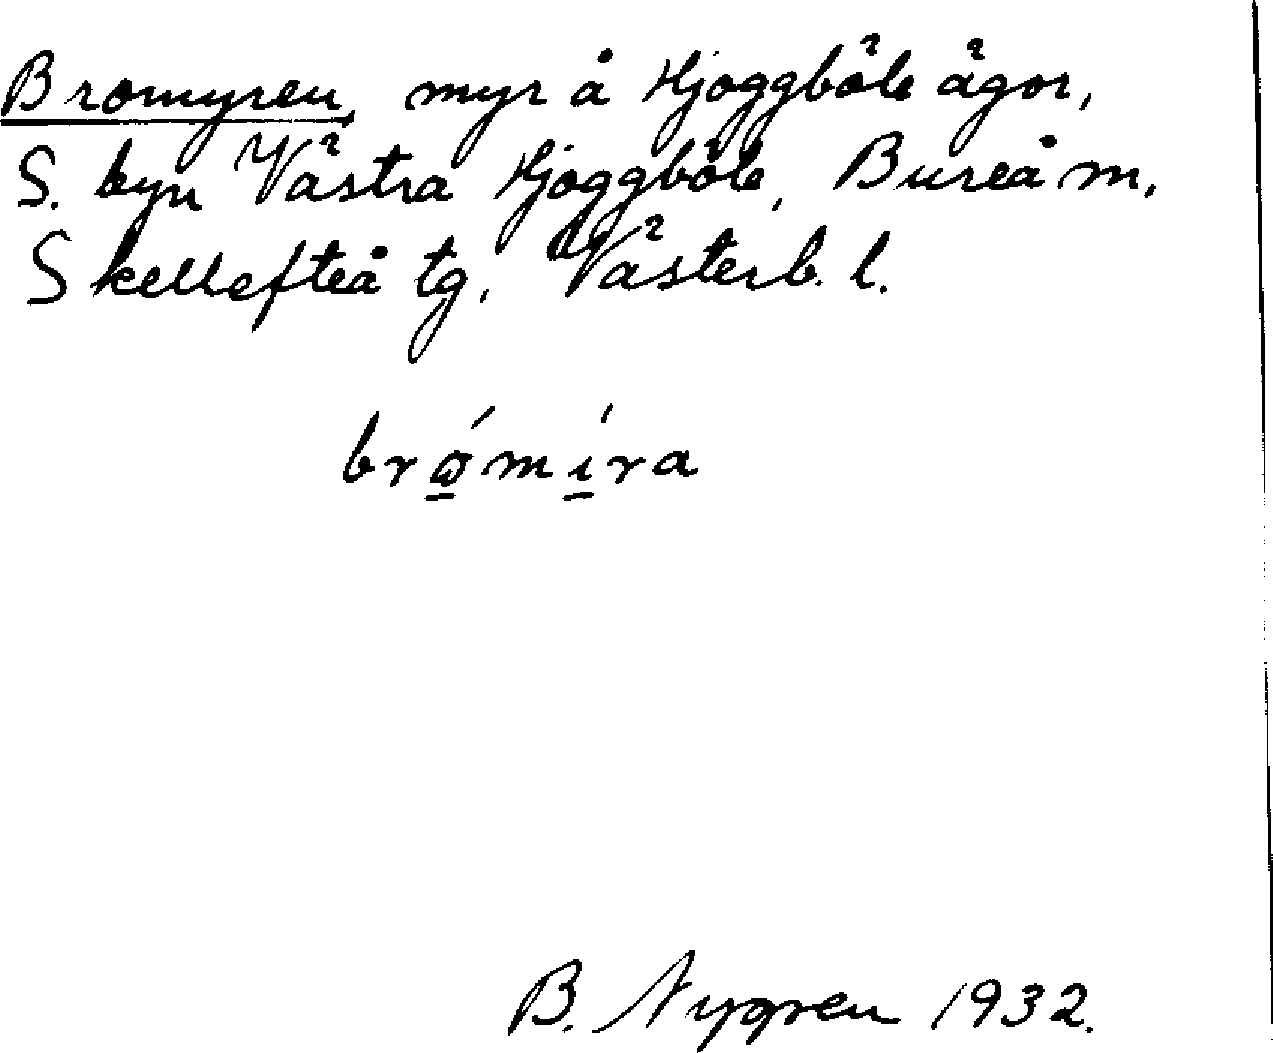 Bromyren, myr å Hjoggböle ägor,
S. byn Västra Hjoggböle, Bureå m,
Skellefteå tg, Västerb. l.
brǿ̲mí̲ra
B. Nygren 1932.